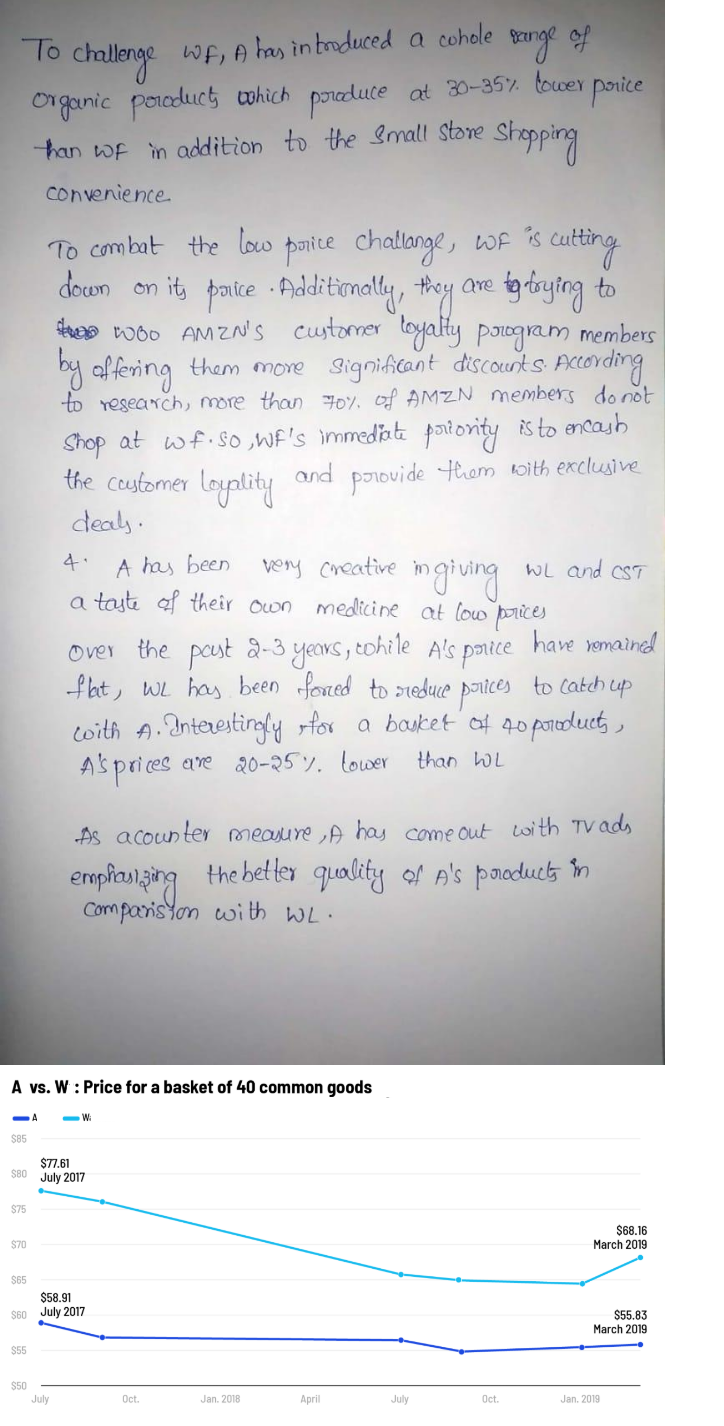 To challenge WF, A has introduced a whole range of
organic products which produce at 30-35% lower price
than WF in addition to the Small Store Shopping
convenience
To combat the low price challange, WF is cutting
down on its price. Additionally, they are trying to
woo AMZN'S customer loyalty program members
by offering them more significant discounts. According
to research, more than 70% of AMZN members do not
shop at WF. So, WF's immediate priority is to encash
the customer loyality and provide them with exclusive
deals.
4. A has been very creative in giving WL and CST
a taste of their own medicine at low prices
over the past 2-3 years, while A's price have remained
flat, WL has been forced to reduce prices to catch up
with A. Interestingly for a basket of 40 products,
A's prices are 20-25% lower than WL
As a counter measure, A has come out with TV ads
emphasizing the better quality of A's products in
comparision with WL.
A vs. W : Price for a basket of 40 common goods
A W
$85
$80
$75
$70
$65
$60
$55
$50
$77.61
July 2017
$68.16
March 2019
$58.91
July 2017
$55.83
March 2019
July Oct. Jan. 2018 April July Oct. Jan. 2019